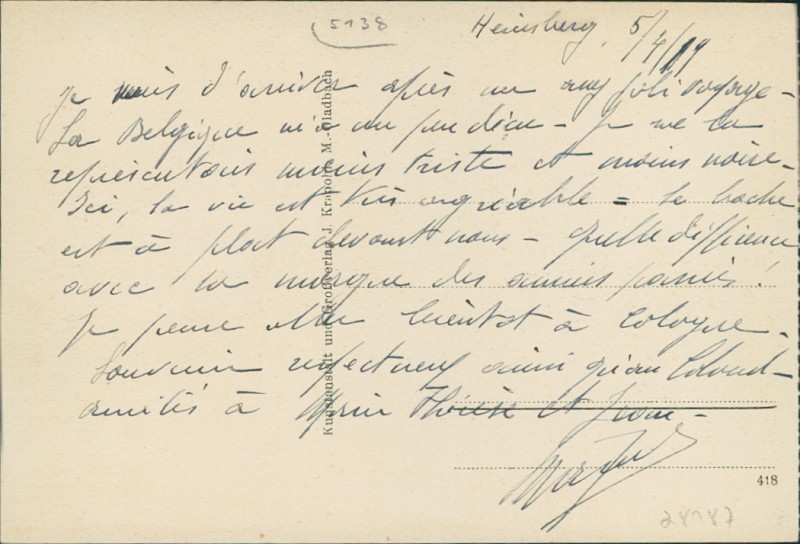 5138
Heinsberg, 5/4/19
Je viens d'arriver après un joli voyage -
La Belgique m'a un peu déçu - Je me la
représentais moins triste et moins noire -
Ici, la vie est très agréable = Le boche
est à plat devant nous - Quelle différence
avec la morgue des années passées !
Je pense aller bientôt à Cologne -
Souvenir respectueux ainsi qu'au Colonel -
amitiés à Marie Thérèse et Jean -
Kunstanstalt und Großverlag J. Krapohl, M.-Gladbach
418
28787